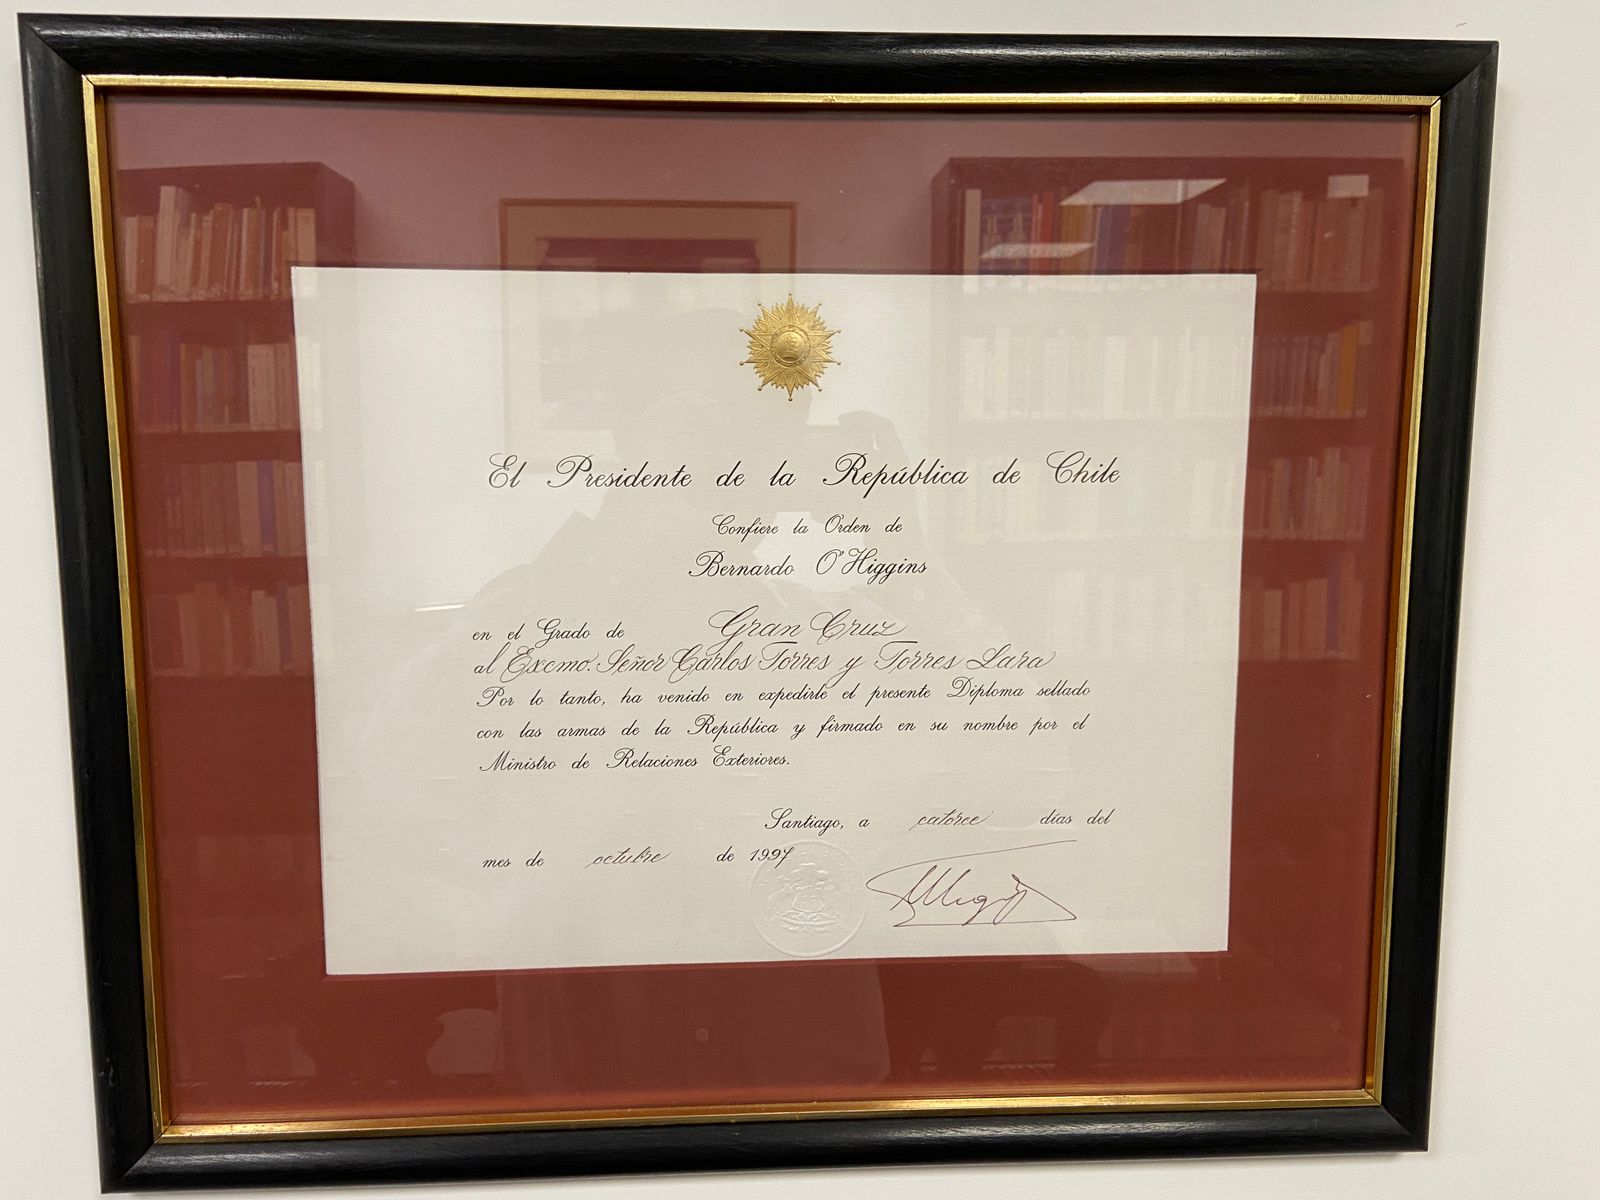 El Presidente de la República de Chile
Confiere la Orden de
Bernardo O'Higgins
en el Grado de Gran Cruz
al Excmo. Señor Carlos Torres y Torres Lara
Por lo tanto, ha venido en expedirle el presente Diploma sellado
con las armas de la República y firmado en su nombre por el
Ministro de Relaciones Exteriores.
Santiago, a catorce días del
mes de octubre de 1997